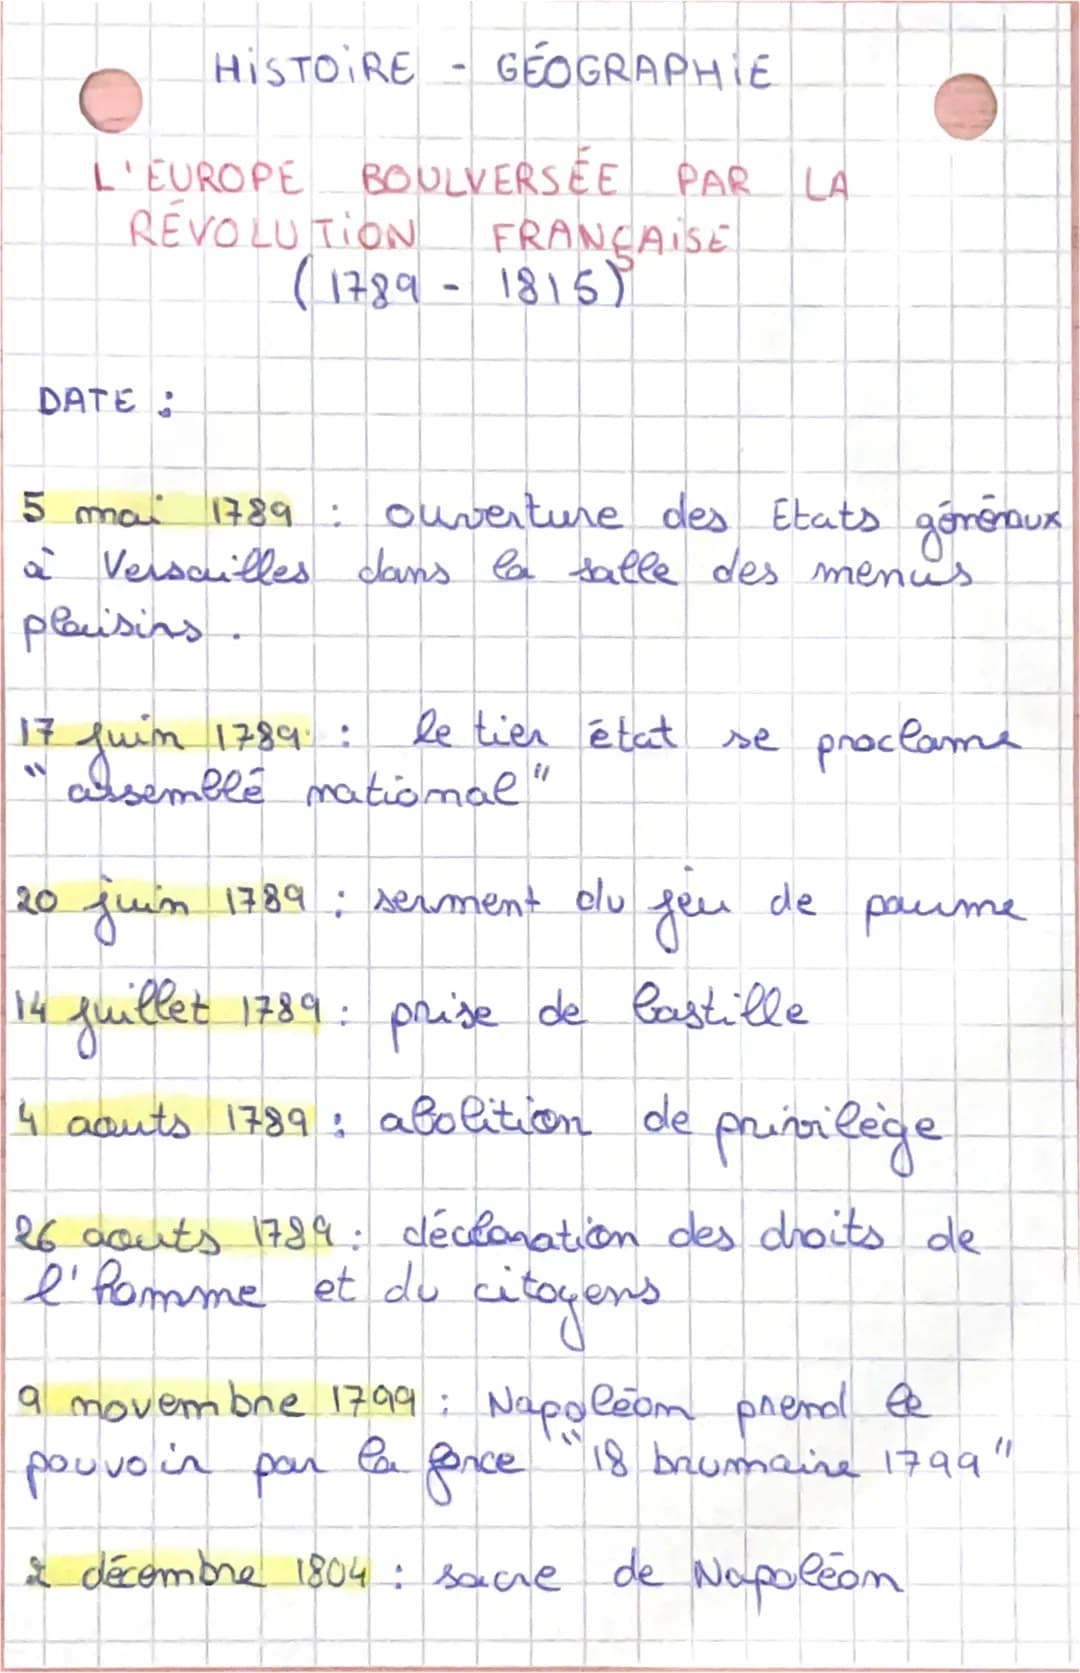 HISTOIRE - GÉOGRAPHIE
L'EUROPE BOULVERSÉE PAR LA
RÉVOLUTION FRANÇAISE
(1789 - 1815)
DATE :
5 mai 1789 : ouverture des Etats généraux
à Versailles dans la salle des menus
plaisirs.
17 juin 1789 : le tier état se proclame
"assemblé national"
20 juin 1789 : serment du jeu de paume
14 juillet 1789 : prise de bastille
4 aouts 1789 : abolition de privilège
26 aouts 1789 : déclaration des droits de
l'homme et du citoyens
9 novembre 1799 : Napoléon prend le
pouvoir par la force "18 brumaire 1799"
2 décembre 1804 : sacre de Napoléon